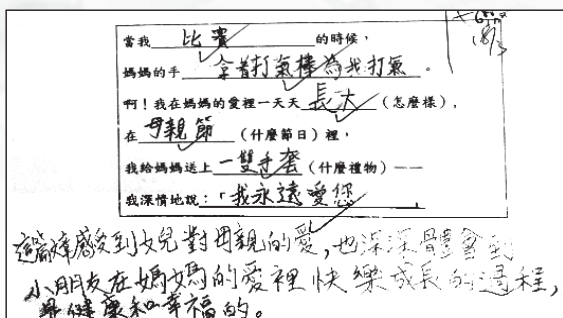 當我 比賽 的時候，
媽媽的手 拿着打氣棒為我打氣。
啊！我在媽媽的愛裡一天天 長大 （怎麼樣），
在 母親節 （什麼節日）裡，
我給媽媽送上 一雙手套 （什麼禮物）——
我深情地說：「我永遠愛您」
感受到女兒對母親的愛，也深深體會到
小朋友在媽媽的愛裡快樂成長的過程，
是健康和幸福的。